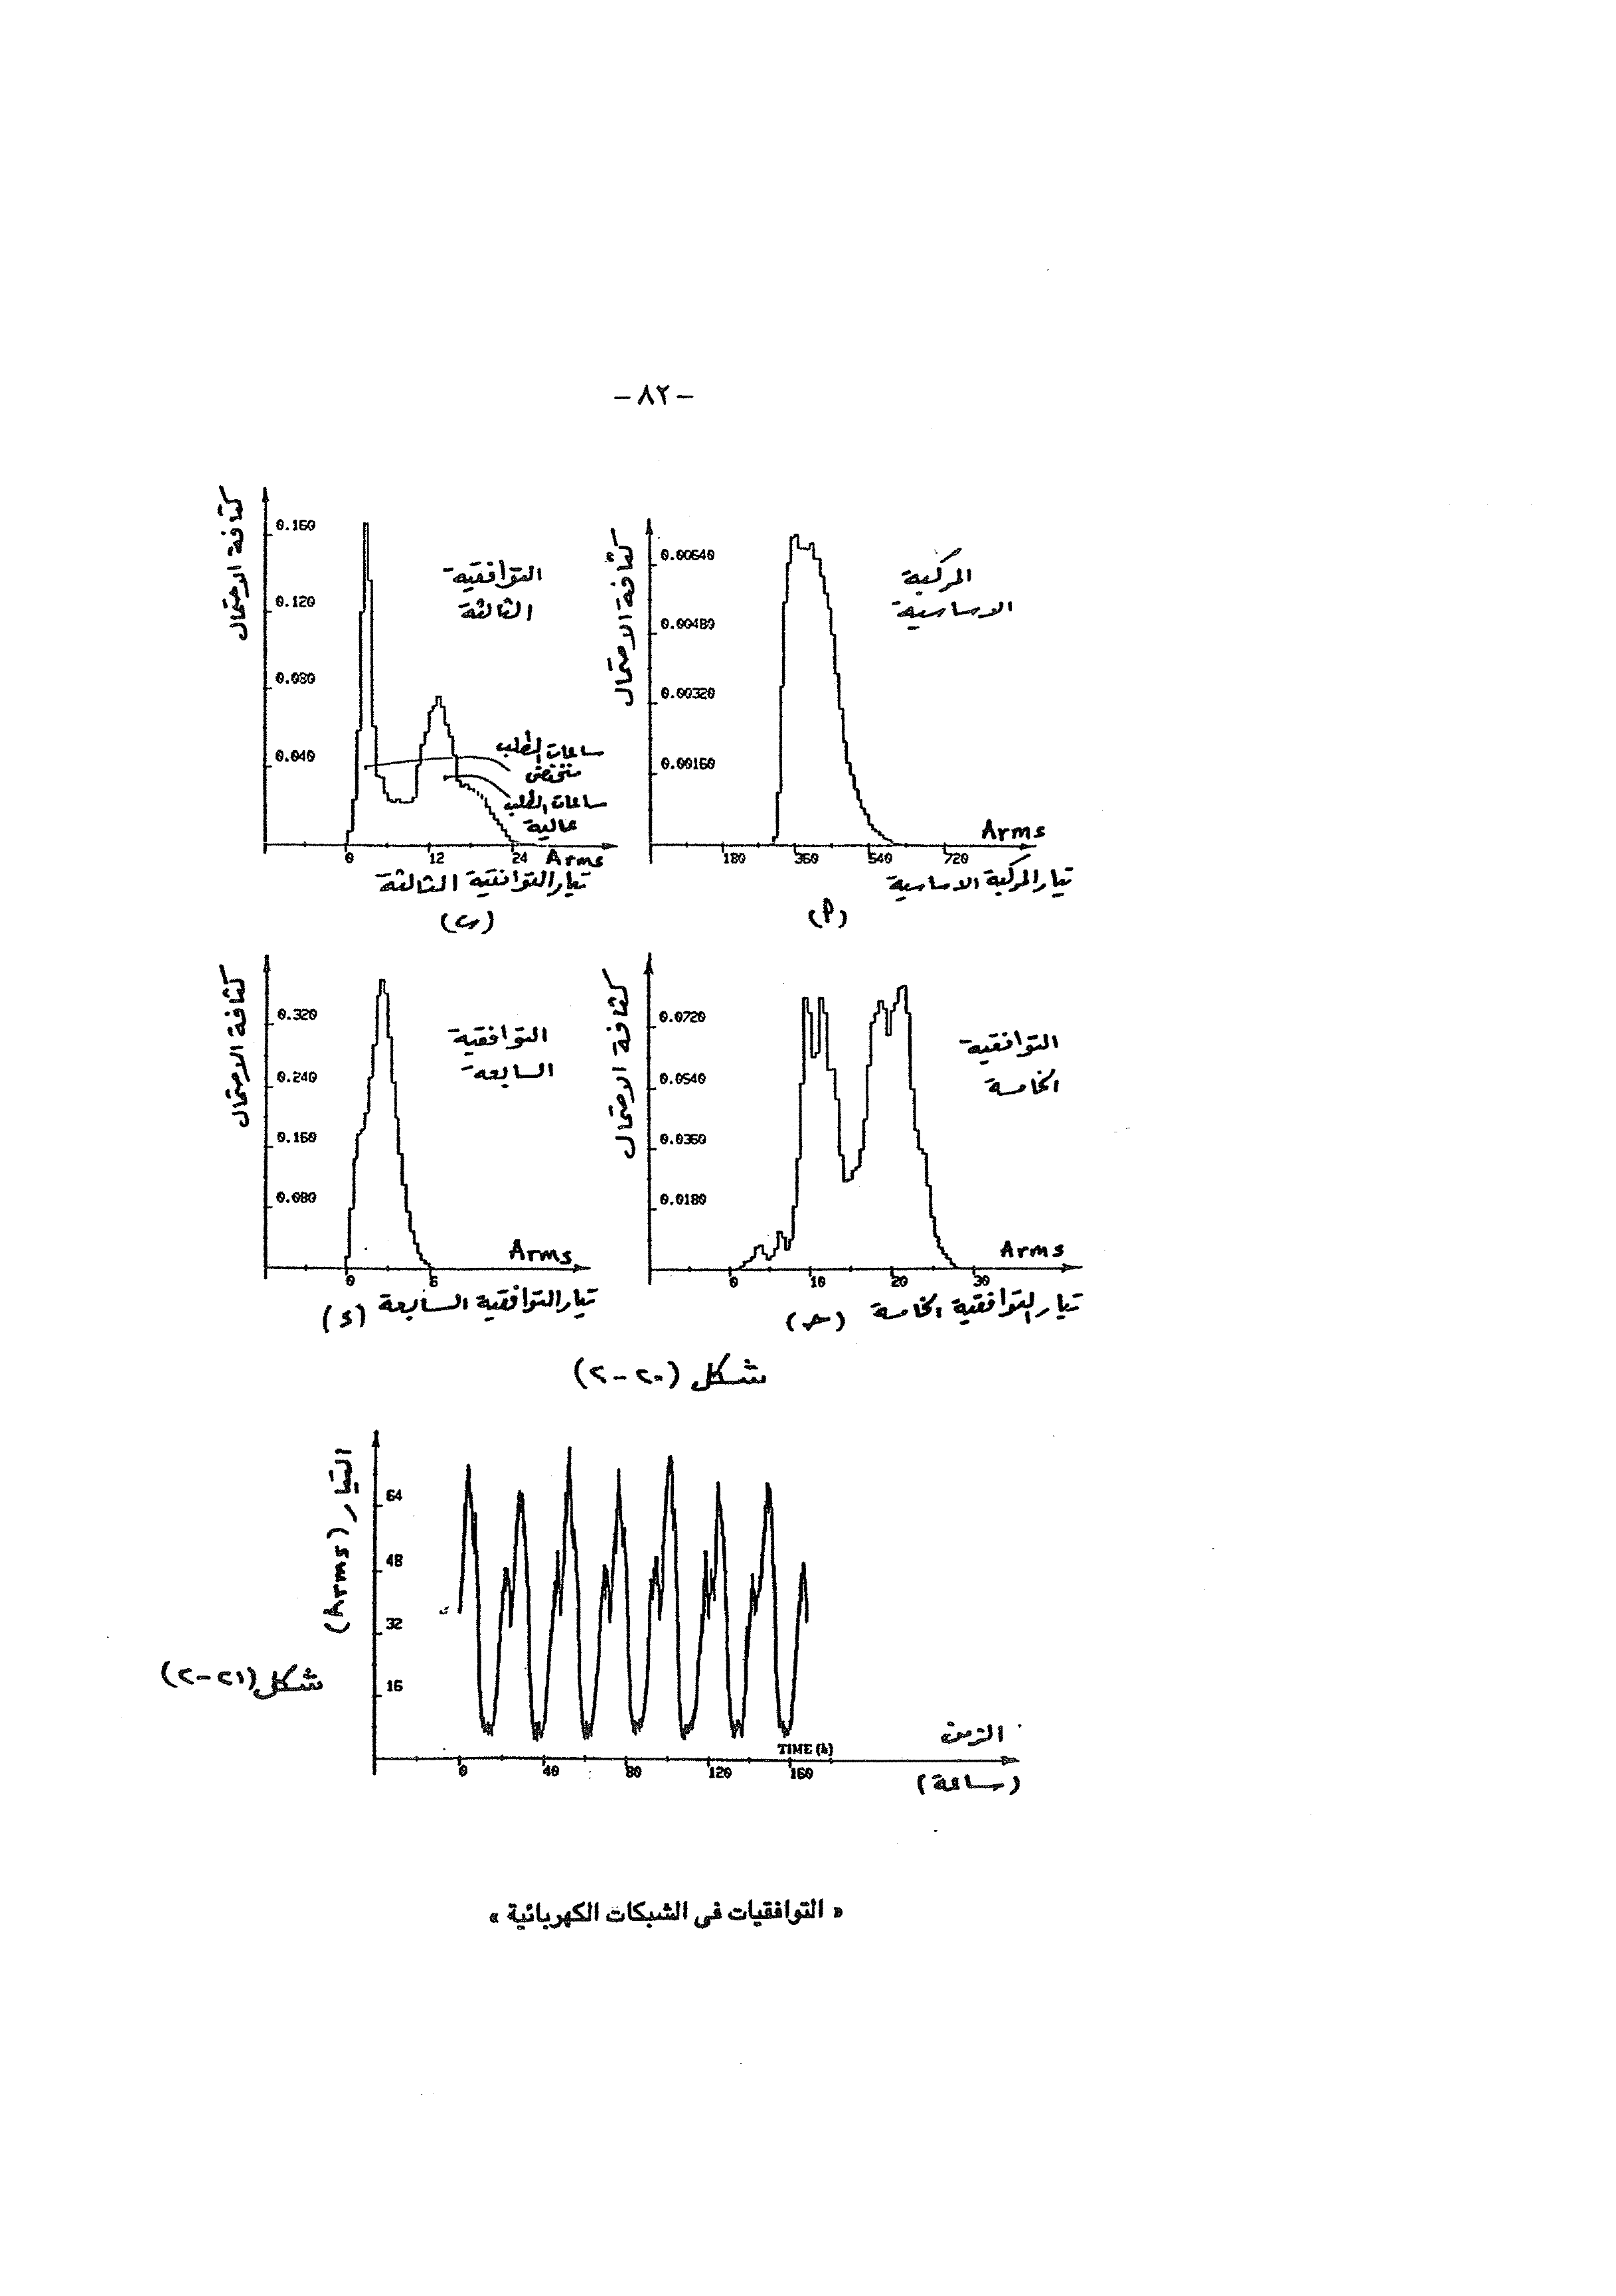 -٨٢-
كثافة الاحتمال
0.00640
0.00480
0.00320
0.00160
المركبة
الاساسية
Arms
180
360
540
720
تيار المركبة الاساسية
(أ)
كثافة الاحتمال
0.160
0.120
0.080
0.040
التوافقية
الثالثة
ساعات الطلب
منخفض
ساعات الطلب
عالية
0
12
24
Arms
تيار التوافقية الثالثة
(ب)
كثافة الاحتمال
0.0720
0.0540
0.0360
0.0180
التوافقية
الخامسة
Arms
0
10
20
30
تيار التوافقية الخامسة (ج)
كثافة الاحتمال
0.320
0.240
0.160
0.080
التوافقية
السابعة
Arms
0
6
تيار التوافقية السابعة (د)
شكل (٢٠-٢)
التيار (Arms)
64
48
32
16
TIME (h)
0
40
80
120
160
الزمن
(ساعة)
شكل (٢١-٢)
« التوافقيات فى الشبكات الكهربائية »